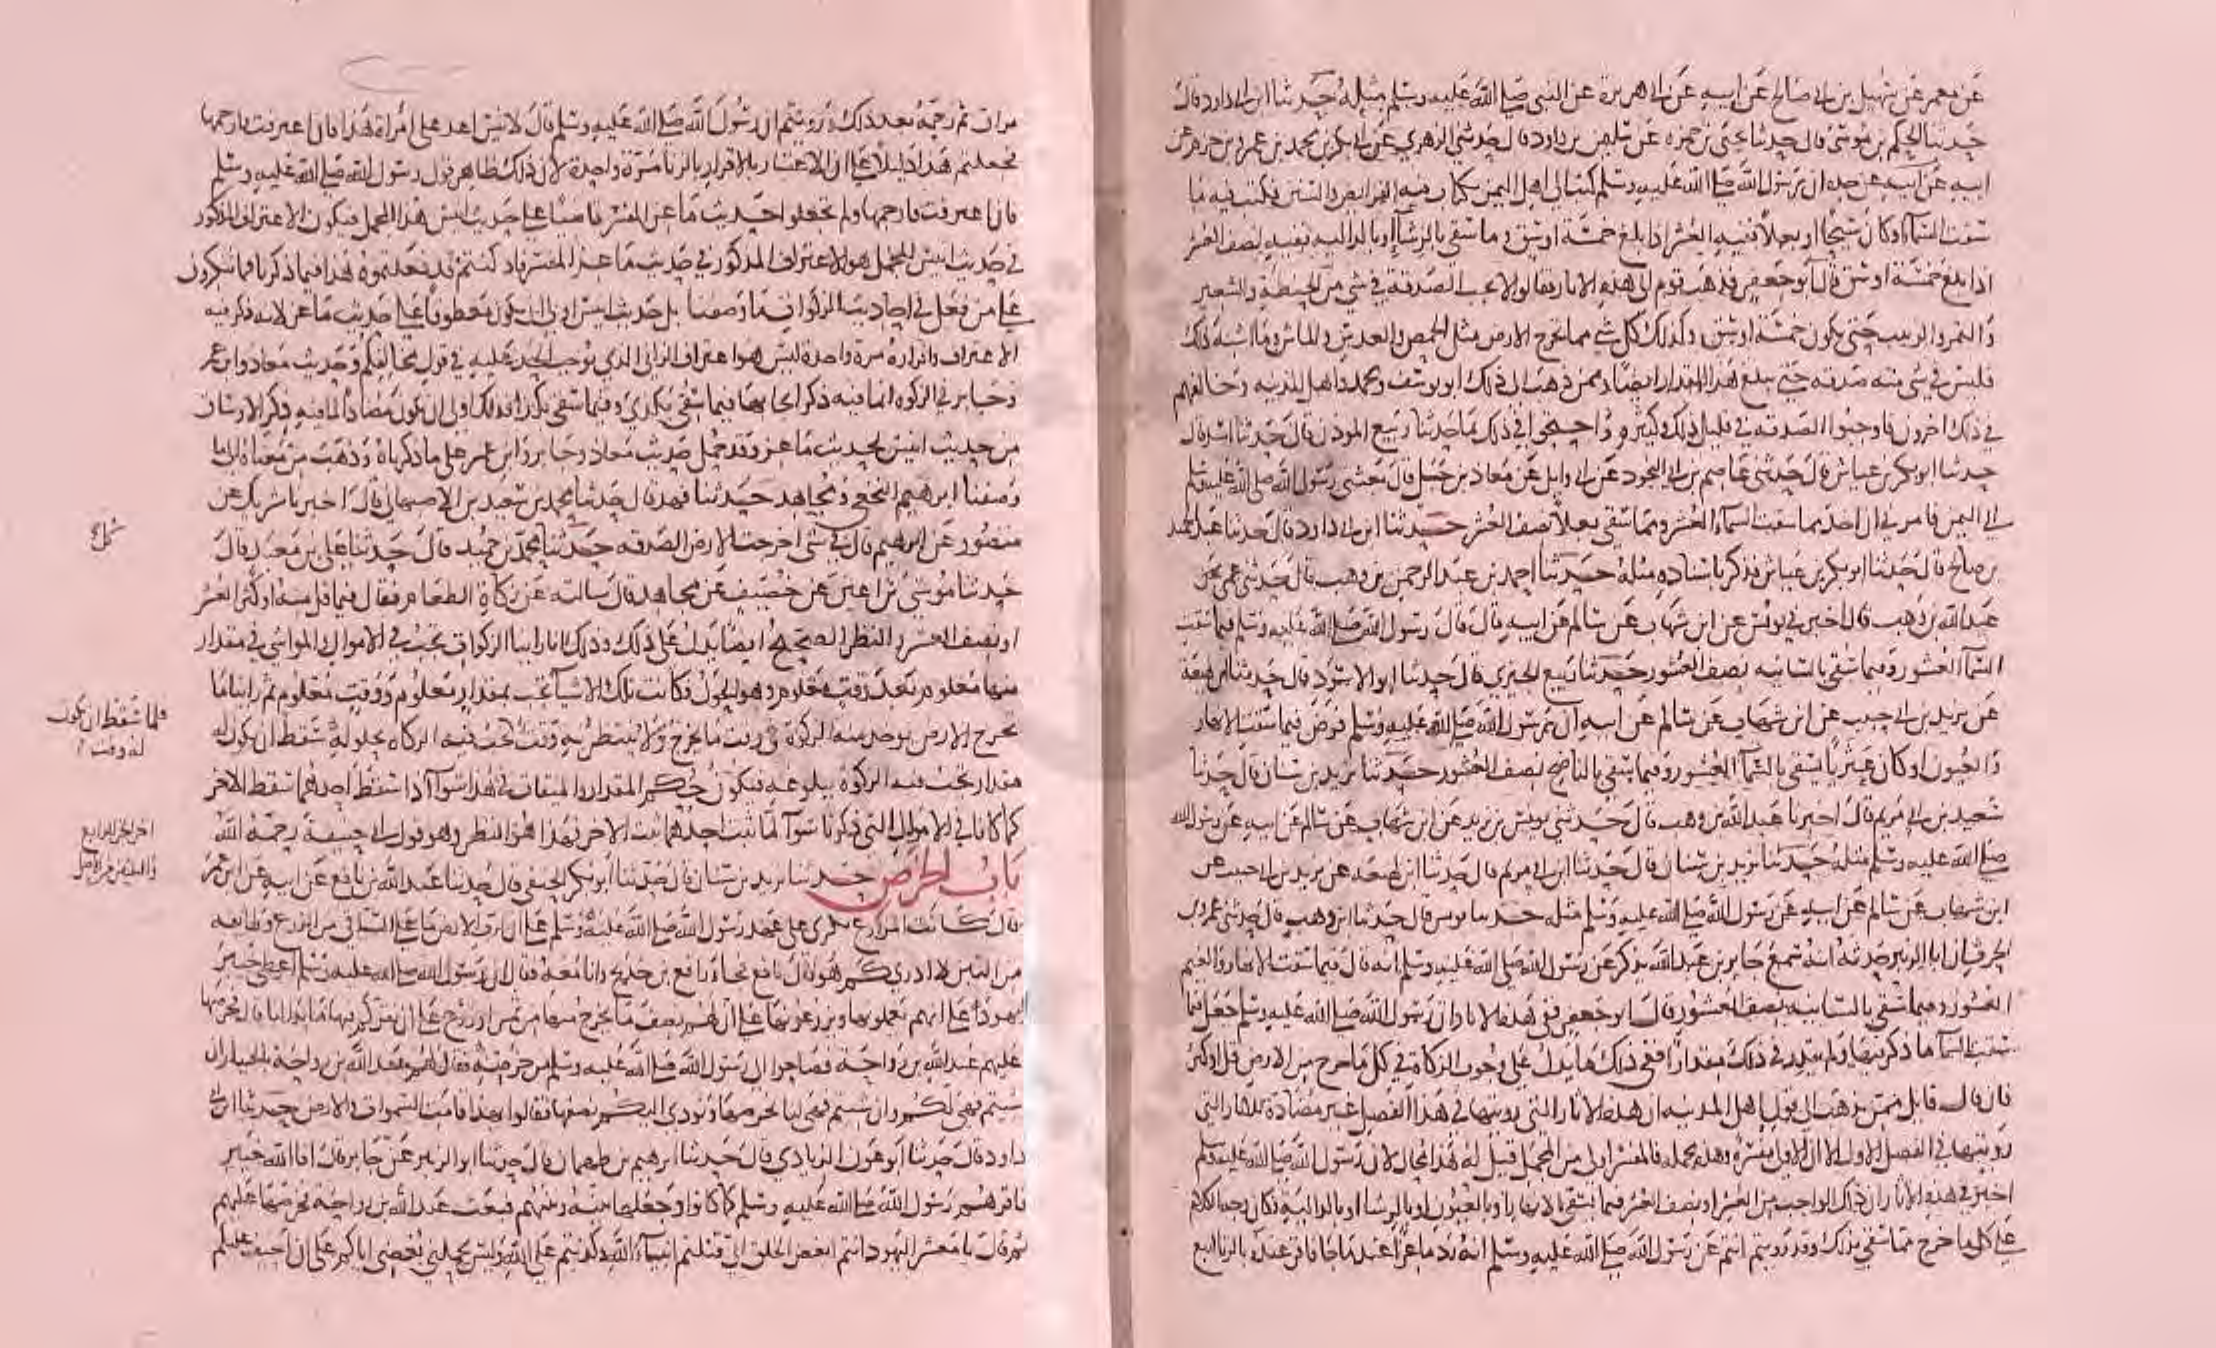 عن معمر عن سهيل بن ابي صالح عن ابيه عن ابي هريرة عن النبي صلى الله عليه وسلم مثله حدثنا ابن ابي داود قال
حدثنا الحكم بن موسى قال حدثنا يحيى بن حمزة عن سليمن بن داود قال حدثني الزهري عن ابي بكر بن محمد بن عمرو بن حزم عن
ابيه عن جده ان رسول الله صلى الله عليه وسلم كتب الى اهل اليمن بكتاب فيه الفرايض والسنن فكتب فيه ما
سقت السماء او كان سيحا او بعلا ففيه العشر اذا بلغ خمسة اوسق وما سقي بالرشا او بالدالية ففيه نصف العشر
اذا بلغ خمسة اوسق قال ابو جعفر فذهب قوم الى هذه الاثار فقالوا لا تجب الصدقة في شي من الحنطة والشعير
والتمر والزبيب حتى يكون خمسة اوسق وكذلك كل شي مما تخرج الارض مثل الحمص والعدس والماش وما اشبه ذلك
فليس في شي منه صدقة حتى يبلغ هذا المقدار ايضا وممن ذهب الى ذلك ابو يوسف ومحمد واهل المدينة وخالفهم
في ذلك اخرون فاوجبوا الصدقة في قليل ذلك وكثيره واحتجوا في ذلك بما حدثنا ربيع المؤذن قال حدثنا اسد قال
حدثنا ابو بكر بن عياش قال حدثني عاصم بن ابي النجود عن ابي وايل عن معاذ بن جبل قال بعثني رسول الله صلى الله عليه وسلم
الى اليمن فامرني ان اخذ مما سقت السماء العشر ومما سقي بعلا نصف العشر حدثنا ابن ابي داود قال حدثنا عبد الحميد
بن صالح قال حدثنا ابو بكر بن عياش فذكر باسناده مثله حدثنا احمد بن عبد الرحمن بن وهب قال حدثني عمي
عبد الله بن وهب قال اخبرني يونس عن ابن شهاب عن سالم عن ابيه قال قال رسول الله صلى الله عليه وسلم فيما سقت
السماء العشور وفيما سقي بالسانيه نصف العشور حدثنا ربيع الجيزي قال حدثنا ابو الاسود قال حدثنا ابن لهيعة
عن يزيد بن ابي حبيب عن ابن شهاب عن سالم عن ابيه ان رسول الله صلى الله عليه وسلم فرض فيما سقت الانهار
والعيون او كان عثريا يسقى بالسماء العشور وفيما سقي بالناضح نصف العشور حدثنا يزيد بن سنان قال حدثنا
سعيد بن ابي مريم قال اخبرنا عبد الله بن وهب قال حدثني يونس بن يزيد عن ابن شهاب عن سالم عن ابيه عن رسول الله
صلى الله عليه وسلم مثله حدثنا يزيد بن سنان قال حدثنا ابن ابي مريم قال حدثنا ابن لهيعة عن يزيد بن ابي حبيب عن
ابن شهاب عن سالم عن ابيه عن رسول الله صلى الله عليه وسلم مثله حدثنا يونس قال حدثنا ابن وهب قال حدثني عمرو بن
الحرث ان ابا الزبير حدثه انه سمع جابر بن عبد الله يذكر عن رسول الله صلى الله عليه وسلم انه قال فيما سقت الانهار والغيم
العشور وفيما سقي بالسانيه نصف العشور قال ابو جعفر ففي هذه الاثار ان رسول الله صلى الله عليه وسلم جعل فيما
سقت السماء ما ذكر فيها ولم يقدر في ذلك مقدارا ففي ذلك ما يدل على وجوب الزكاة في كل ما خرج من الارض قل او كثر
فان قال قايل ممن يذهب الى قول اهل المدينة ان هذه الاثار التي رويتها في هذا الفصل غير مضادة للاثار التي
رويتها في الفصل الاول الا ان الاول مفسرة وهذه مجملة فالمفسر اولى من المجمل قيل له هذا محال لان رسول الله صلى الله عليه وسلم
اخبر في هذه الاثار ان ذلك الواجب من العشر او نصف العشر فيما يسقى بالانهار او بالعيون او بالرشا او بالدالية فكان وجه الكلام
على كل ما خرج مما سقي بذلك وقد رويتم انتم عن رسول الله صلى الله عليه وسلم انه رد ماعزا عند ما جا فاقر عنده بالزنا اربع
مرات ثم رجمه بعد ذلك ورويتم ان رسول الله صلى الله عليه وسلم قال لانيس اغد على امراة هذا فان اعترفت فارجمها
فجعلتم هذا دليلا على ان الاعتبار بالاقرار بالزنا مرة واحدة لان ذلك ظاهر قول رسول الله صلى الله عليه وسلم
فان اعترفت فارجمها ولم تجعلوا حديث ماعز المفسر قاضيا على حديث انيس هذا المجمل فيكون الاعتراف المذكور
في حديث انيس المجمل هو الاعتراف المذكور في حديث ماعز المفسر فاذ كنتم قد فعلتموه هذا فيما ذكرنا فما تنكرون
على من فعل في احاديث الزكوات ما وصفنا بل حديث انيس اولى ان يكون معطوفا على حديث ماعز لانه ذكر فيه
الاعتراف واقراره مرة واحدة ليس هو اعتراف الزاني الذي يوجب الحد عليه في قول مخالفكم وحديث معاذ وابن عمر
وجابر في الزكوه انما فيه ذكر ايجابها فيما سقي بكذا وفيما سقي بكذا فذلك اولى ان يكون مضادا لما فيه ذكر الاوساق
من حديث انيس لحديث ماعز وقد حمل حديث معاذ وجابر وابن عمر على ما ذكرناه وذهب من معناه الى ما
وصفنا ابرهيم النخعي ومجاهد حدثنا فهد قال حدثنا محمد بن سعيد بن الاصبهاني قال اخبرنا شريك عن
منصور عن ابرهيم قال في كل شي اخرجت الارض الصدقه حدثنا محمد بن حميد قال حدثنا علي بن معبد قال
حدثنا موسى بن اعين عن خصيف عن مجاهد قال سالته عن زكاة الطعام فقال فيما قل منه او كثر العشر
او نصف العشر والنظر الصحيح ايضا يدل على ذلك وذلك انا راينا الزكوات تجب في الاموال والمواشي في مقدار
منها معلوم بعد وقت معلوم وهو الحول فكانت تلك الاشيا تجب بمقدار معلوم ووقت معلوم ثم راينا ما
تخرج الارض يوخذ منه الزكوة في وقت ما يخرج ولا ينتظر به وقت تجب فيه الزكاه بحلوله سقط ان يكون له
مقدار تجب فيه الزكوة ببلوغه فيكون حكم المقدار والميقات في هذا سوا اذا سقط احدهما سقط الاخر
كما كانا في الاموال التي ذكرنا سوا لما ثبت احدهما ثبت الاخر فهذا هو النظر وهو قول ابي حنيفة رحمه الله
باب الخرص حدثنا يزيد بن سنان قال حدثنا ابو بكر الحنفي قال حدثنا عبد الله بن نافع عن ابيه عن ابن عمر
قال كانت المزارع تكرى على عهد رسول الله صلى الله عليه وسلم على ان لرب الارض ما على الساقي من الزرع وطايفه
من التبن لا ادري كم هو قال نافع فجاء رافع بن خديج وانا معه فقال ان رسول الله صلى الله عليه وسلم اعطى خيبر
اليهود على انهم يعملونها ويزرعونها على ان لهم نصف ما يخرج منها من ثمر او زرع على ان نقركم فيها ما بدا لنا قال فخرصها
عليهم عبد الله بن رواحة فصاحوا الى رسول الله صلى الله عليه وسلم من خرصه فقال لهم عبد الله بن رواحة انتم بالخيار ان
شيتم فهي لكم وان شيتم فهي لنا نخرصها ونودي اليكم نصفها فقالوا بهذا قامت السموات والارض حدثنا ابن ابي
داود قال حدثنا ابو عون الزيادي قال حدثنا ابرهيم بن طهمان قال حدثنا ابو الزبير عن جابر قال افا الله خيبر
فاقرهم رسول الله صلى الله عليه وسلم كما كانوا وجعلها بينه وبينهم فبعث عبد الله بن رواحة فخرصها عليهم
ثم قال يا معشر اليهود انتم ابغض الخلق الي قتلتم انبياء الله وكذبتم على الله وليس يحملني بغضي اياكم على ان احيف عليكم
كل
فلما سقط ان يكون
له وقت
اخر الجز الرابع
من الاصل